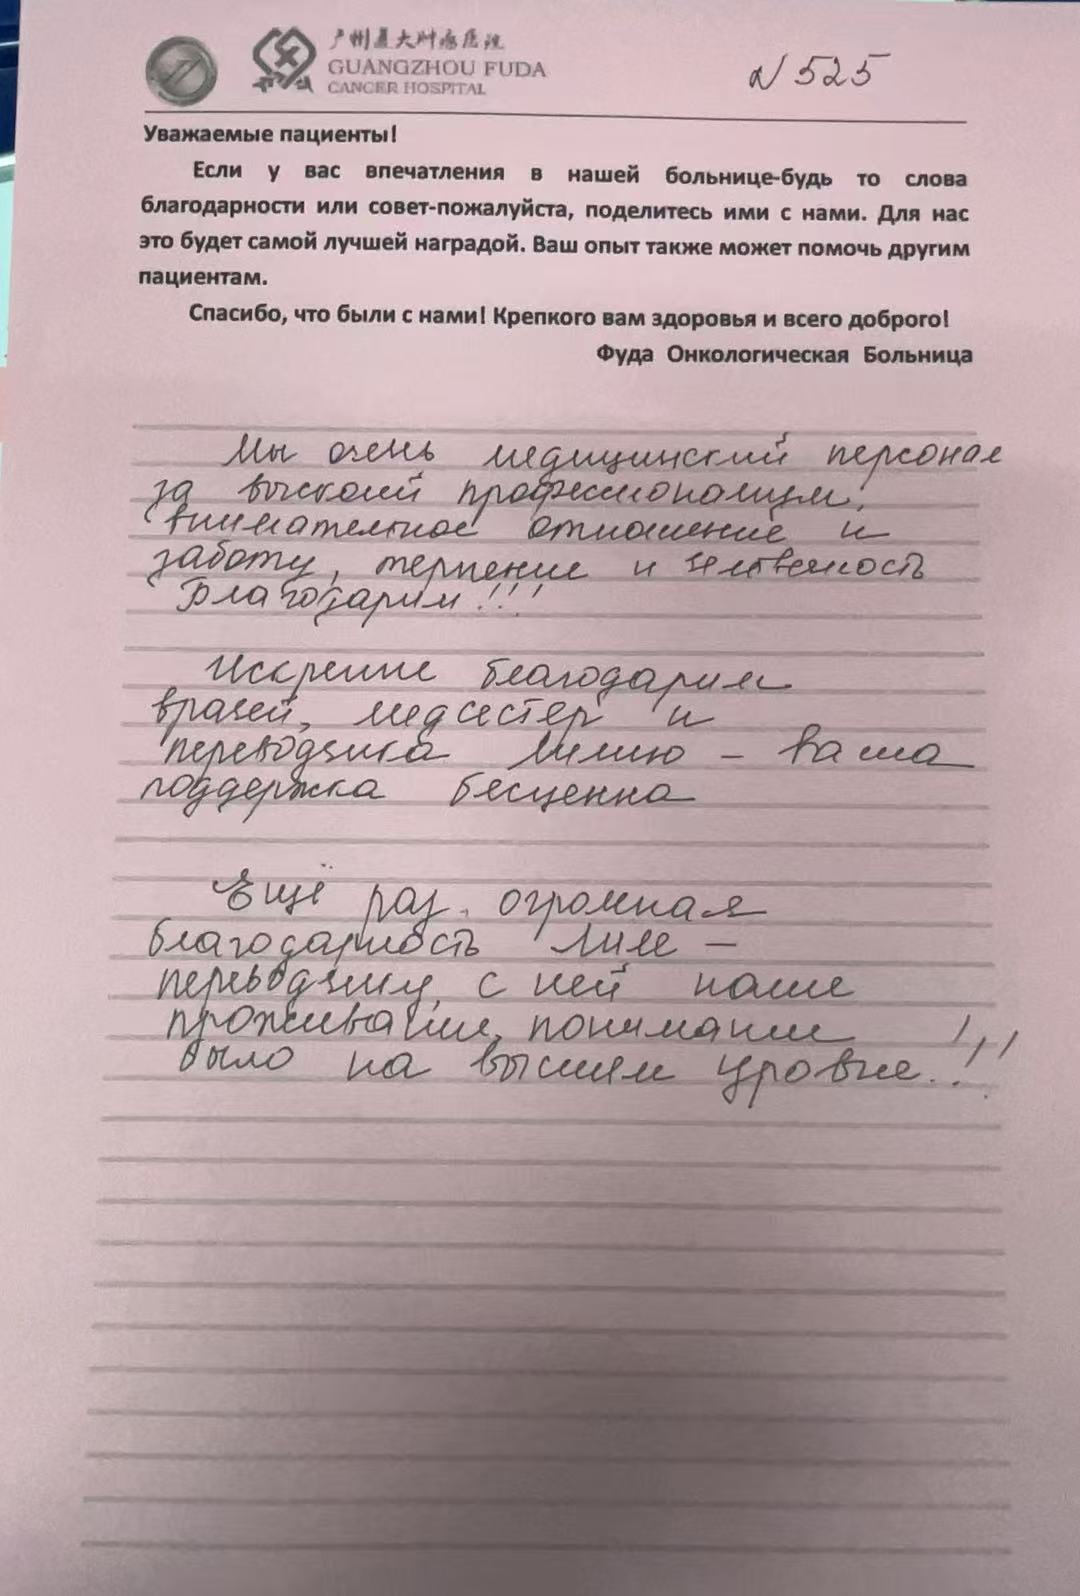 广州复大肿瘤医院
GUANGZHOU FUDA
CANCER HOSPITAL
N 525
Уважаемые пациенты!
Если у вас впечатления в нашей больнице-будь то слова
благодарности или совет-пожалуйста, поделитесь ими с нами. Для нас
это будет самой лучшей наградой. Ваш опыт также может помочь другим
пациентам.
Спасибо, что были с нами! Крепкого вам здоровья и всего доброго!
Фуда Онкологическая Больница
Мы очень медицинский персонал
за высокий профессионализм,
внимательное отношение и
заботу, терпение и
Благодарим!!!
Искренне благодарим
врачей, медсестёр и
переводчика Лилию – ваша
поддержка бесценна
Ещё раз огромная
благодарность Лиле –
переводчику, с ней наше
проживание, понимание
было на высшем уровне..!!!